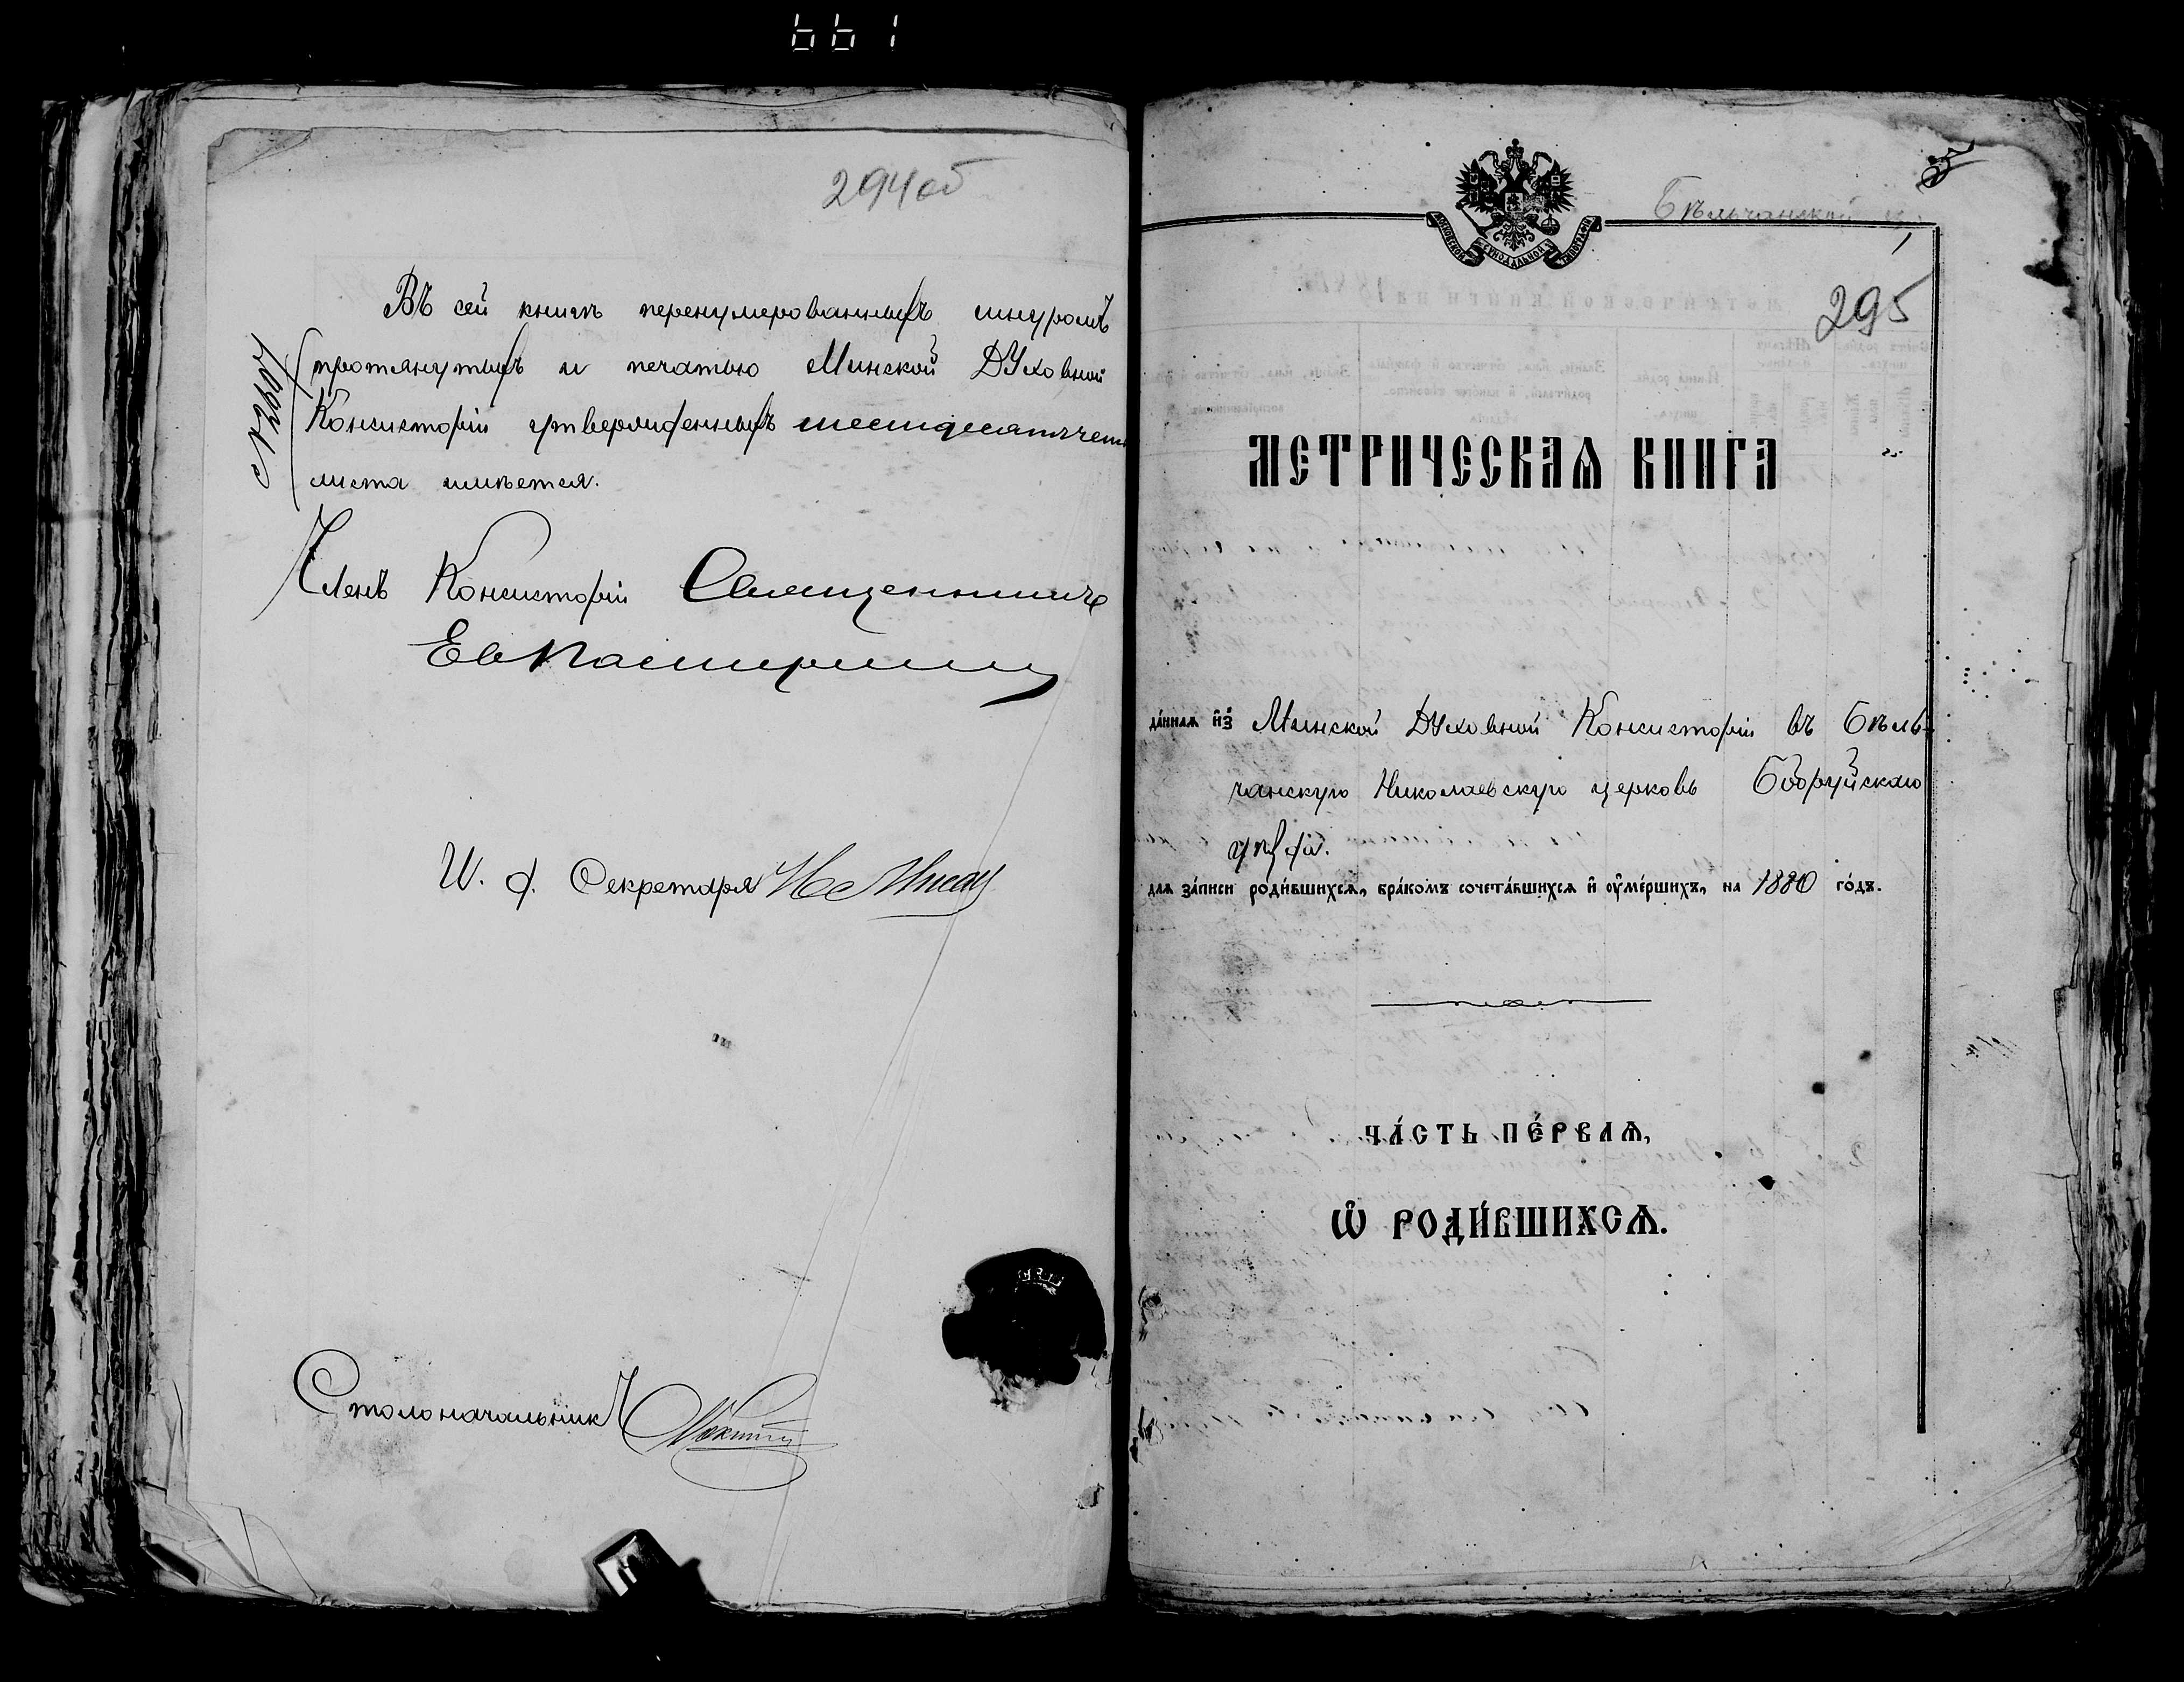 661
294об
Въ сей книгѣ перенумерованныхъ шнуромъ
протянутыхъ и печатью Минской Духовной
Консисторіи утвержденныхъ шестдесятъ чет
листа имѣется.
Членъ Консисторіи Священникъ
И. д. Секретаря
Столоначальникъ
Бѣльчанской ц.
МОСКОВСКОЙ СѴНОДАЛЬНОЙ ТИПОГРАФІИ
295
МЕТРИЧЕСКАѦ КНИГА
да́ннаѧ и҆зъ Минской Духовной Консисторіи въ Бѣль-
чанскую Николаевскую церковь Бобруйскаго
уѣзда.
длѧ за́писи роди́вшихсѧ, бра́комъ сочета́вшихсѧ и҆ ᲂу҆ме́ршихъ, на 1880 го́дъ.
ЧА́СТЬ ПЕ́РВАѦ,
Ѡ҆ РОДИ́ВШИХСѦ.